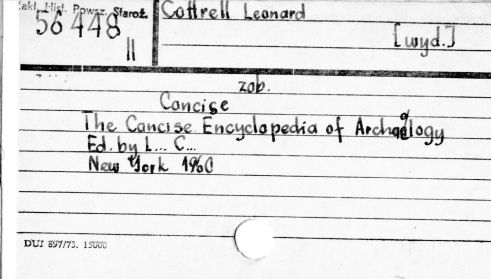 Zakł. Hist. Powsz. Staroż.
56448
II
Cottrell Leonard
[wyd.]
zob.
Concise
The Concise Encyclopedia of Archaeology
Ed. by L... C...
New York 1960
DUJ 897/73. 15000